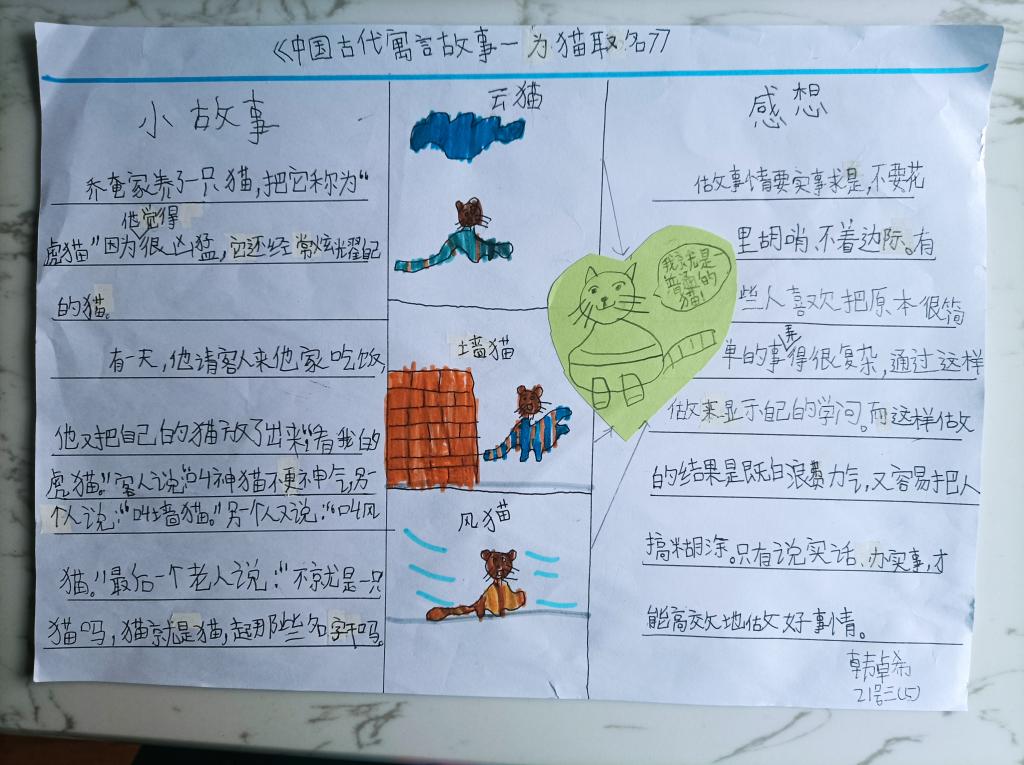 《中国古代寓言故事一为猫取名》
小故事
乔奄家养了一只猫,把它称为“
他觉得
虎猫”因为很凶猛,它还经常炫耀自己
的猫。
有一天,他请客人来他家吃饭,
他又把自己的猫放了出来:“看我的
虎猫。”客人说:“叫神猫不更神气,另一
个人说:“叫墙猫。”另一个人又说:“叫风
猫。”最后一个老人说:“不就是一只
猫吗,猫就是猫,起那些名字干吗。
云猫
墙猫
风猫
我就是一
普通的
猫!
感想
做故事情要实事求是,不要花
里胡哨,不着边际。有
些人喜欢把原本很简
弄
单的事得很复杂,通过这样
做来显示自己的学问。而这样做
的结果是既白浪费力气,又容易把人
搞糊涂。只有说实话、办实事,才
能高效地做好事情。
韩卓希
21号三(5)